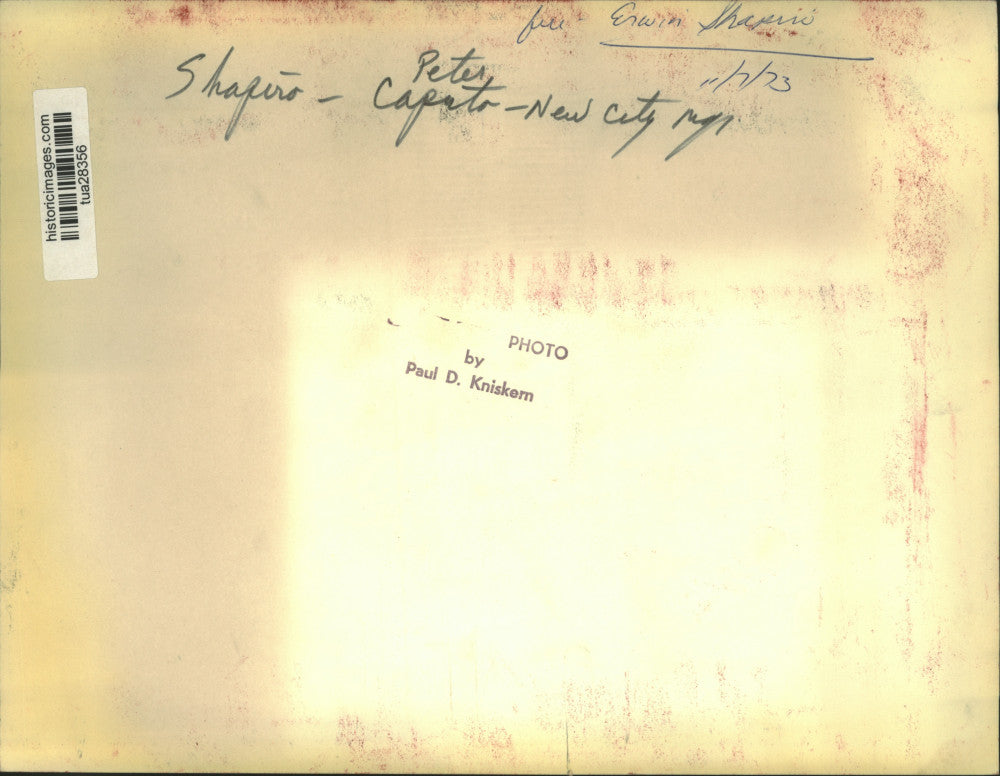 file Erwin Shapiro
11/7/73
Peter
Shapiro - Caputo - New City mgr.
historicimages.com
tua28356
PHOTO
by
Paul D. Kniskern